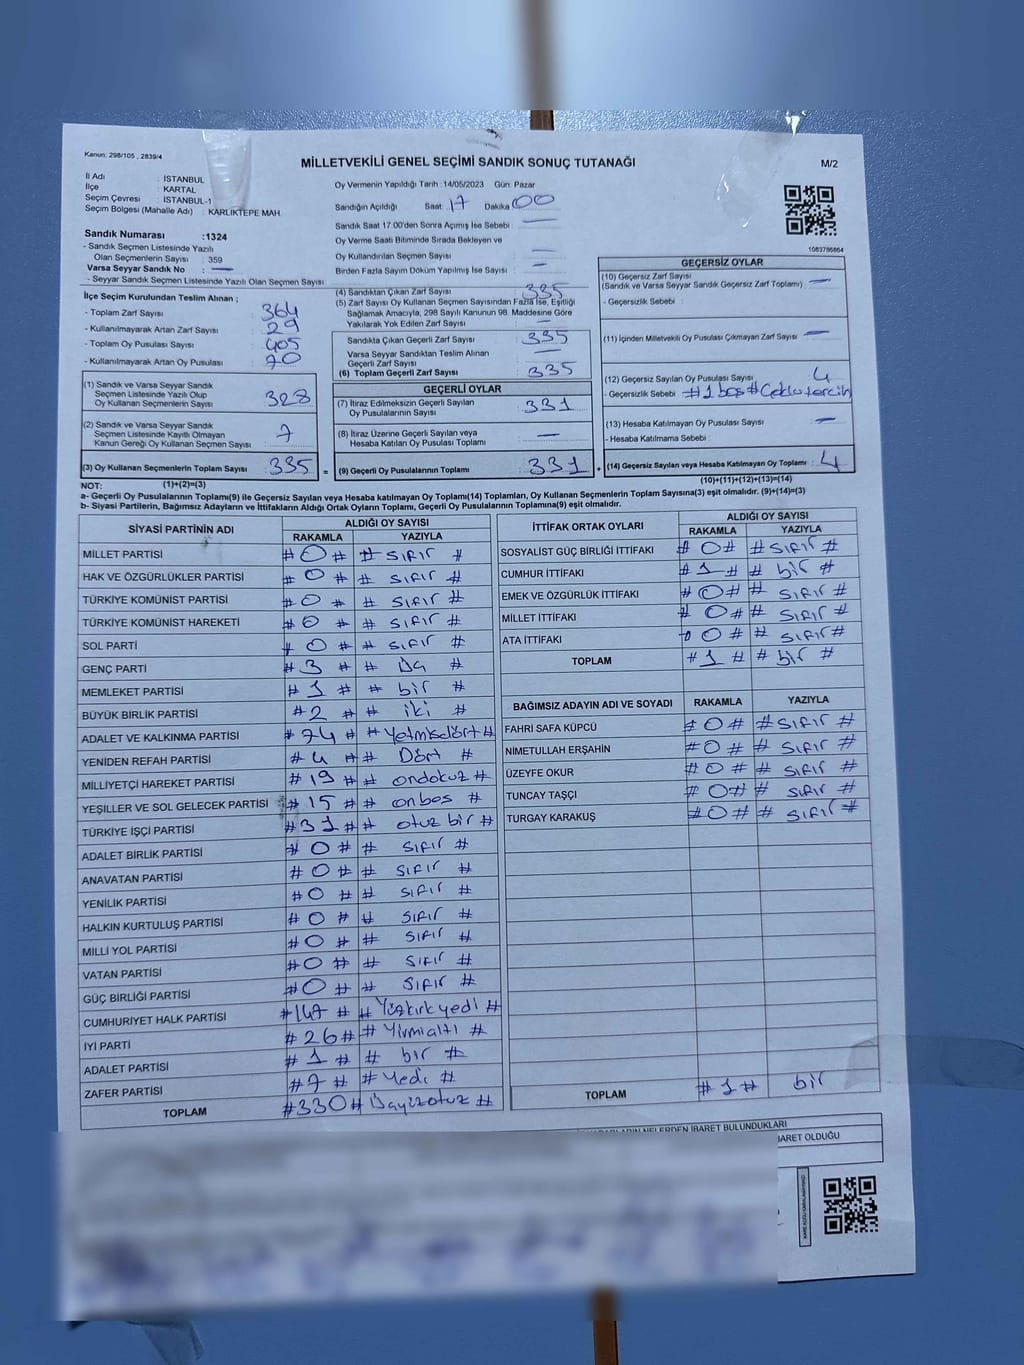 Kanun: 298/105 , 2839/4
MİLLETVEKİLİ GENEL SEÇİMİ SANDIK SONUÇ TUTANAĞI
M/2
İl Adı : İSTANBUL
İlçe : KARTAL
Seçim Çevresi : İSTANBUL-1
Seçim Bölgesi (Mahalle Adı) : KARLIKTEPE MAH
Oy Vermenin Yapıldığı Tarih :14/05/2023 Gün: Pazar
Sandığın Açıldığı Saat: 17 Dakika: 00
Sandık Saat 17.00'den Sonra Açımış İse Sebebi : —
Oy Verme Saati Bitiminde Sırada Bekleyen ve
Oy Kullandırılan Seçmen Sayısı : —
Birden Fazla Sayım Döküm Yapılmış İse Sayısı : —
1083786864
Sandık Numarası :1324
- Sandık Seçmen Listesinde Yazılı
Olan Seçmenlerin Sayısı : 359
Varsa Seyyar Sandık No : —
- Seyyar Sandık Seçmen Listesinde Yazılı Olan Seçmen Sayısı :
İlçe Seçim Kurulundan Teslim Alınan ;
- Toplam Zarf Sayısı : 364
- Kullanılmayarak Artan Zarf Sayısı : 29
- Toplam Oy Pusulası Sayısı : 405
- Kullanılmayarak Artan Oy Pusulası : 70
(1) Sandık ve Varsa Seyyar Sandık
Seçmen Listesinde Yazılı Olup
Oy Kullanan Seçmenlerin Sayısı : 328
(2) Sandık ve Varsa Seyyar Sandık
Seçmen Listesinde Kayıtlı Olmayan
Kanun Gereği Oy Kullanan Seçmen Sayısı : 7
(3) Oy Kullanan Seçmenlerin Toplam Sayısı : 335 =
(1)+(2)=(3)
(4) Sandıktan Çıkan Zarf Sayısı : 335
(5) Zarf Sayısı Oy Kullanan Seçmen Sayısından Fazla İse, Eşitliği
Sağlamak Amacıyla, 298 Sayılı Kanunun 98. Maddesine Göre
Yakılarak Yok Edilen Zarf Sayısı : —
Sandıkta Çıkan Geçerli Zarf Sayısı : 335
Varsa Seyyar Sandıktan Teslim Alınan
Geçerli Zarf Sayısı : —
(6) Toplam Geçerli Zarf Sayısı : 335
GEÇERLİ OYLAR
(7) İtiraz Edilmeksizin Geçerli Sayılan
Oy Pusulalarının Sayısı : 331
(8) İtiraz Üzerine Geçerli Sayılan veya
Hesaba Katılan Oy Pusulası Toplamı : —
(9) Geçerli Oy Pusulalarının Toplamı : 331 +
GEÇERSİZ OYLAR
(10) Geçersiz Zarf Sayısı
(Sandık ve Varsa Seyyar Sandık Geçersiz Zarf Toplamı) : —
- Geçersizlik Sebebi :
(11) İçinden Milletvekili Oy Pusulası Çıkmayan Zarf Sayısı : —
(12) Geçersiz Sayılan Oy Pusulası Sayısı : 4
- Geçersizlik Sebebi : #1 boş #Çoklu tercih
(13) Hesaba Katılmayan Oy Pusulası Sayısı : —
- Hesaba Katılmama Sebebi :
(14) Geçersiz Sayılan veya Hesaba Katılmayan Oy Toplamı : 4
(10)+(11)+(12)+(13)=(14)
NOT:
a- Geçerli Oy Pusulalarının Toplamı(9) ile Geçersiz Sayılan veya Hesaba katılmayan Oy Toplamı(14) Toplamları, Oy Kullanan Seçmenlerin Toplam Sayısına(3) eşit olmalıdır. (9)+(14)=(3)
b- Siyasi Partilerin, Bağımsız Adayların ve İttifakların Aldığı Ortak Oyların Toplamı, Geçerli Oy Pusulalarının Toplamına(9) eşit olmalıdır.
SİYASİ PARTİNİN ADI ALDIĞI OY SAYISI
RAKAMLA YAZIYLA
MİLLET PARTİSİ # 0 # # sıfır #
HAK VE ÖZGÜRLÜKLER PARTİSİ # 0 # # sıfır #
TÜRKİYE KOMÜNİST PARTİSİ # 0 # # sıfır #
TÜRKİYE KOMÜNİST HAREKETİ # 0 # # sıfır #
SOL PARTİ # 0 # # sıfır #
GENÇ PARTİ # 3 # # Üç #
MEMLEKET PARTİSİ # 1 # # bir #
BÜYÜK BİRLİK PARTİSİ # 2 # # iki #
ADALET VE KALKINMA PARTİSİ # 74 # # Yetmişdört #
YENİDEN REFAH PARTİSİ # 4 # # Dört #
MİLLİYETÇİ HAREKET PARTİSİ # 19 # # ondokuz #
YEŞİLLER VE SOL GELECEK PARTİSİ # 15 # # onbeş #
TÜRKİYE İŞÇİ PARTİSİ # 31 # # otuz bir #
ADALET BİRLİK PARTİSİ # 0 # # sıfır #
ANAVATAN PARTİSİ # 0 # # sıfır #
YENİLİK PARTİSİ # 0 # # sıfır #
HALKIN KURTULUŞ PARTİSİ # 0 # # sıfır #
MİLLİ YOL PARTİSİ # 0 # # sıfır #
VATAN PARTİSİ # 0 # # sıfır #
GÜÇ BİRLİĞİ PARTİSİ # 0 # # sıfır #
CUMHURİYET HALK PARTİSİ # 147 # # Yüzkırkyedi #
İYİ PARTİ # 26 # # Yirmialtı #
ADALET PARTİSİ # 1 # # bir #
ZAFER PARTİSİ # 7 # # Yedi #
TOPLAM # 330 # Üçyüzotuz #
İTTİFAK ORTAK OYLARI ALDIĞI OY SAYISI
RAKAMLA YAZIYLA
SOSYALİST GÜÇ BİRLİĞİ İTTİFAKI # 0 # # sıfır #
CUMHUR İTTİFAKI # 1 # # bir #
EMEK VE ÖZGÜRLÜK İTTİFAKI # 0 # # sıfır #
MİLLET İTTİFAKI # 0 # # sıfır #
ATA İTTİFAKI # 0 # # sıfır #
TOPLAM # 1 # # bir #
BAĞIMSIZ ADAYIN ADI VE SOYADI RAKAMLA YAZIYLA
FAHRİ SAFA KÜPCÜ # 0 # # sıfır #
NİMETULLAH ERŞAHİN # 0 # # sıfır #
ÜZEYFE OKUR # 0 # # sıfır #
TUNCAY TAŞÇI # 0 # # sıfır #
TURGAY KARAKUŞ # 0 # # sıfır #
TOPLAM # 1 # bir
NELERDEN İBARET BULUNDUKLARI
İBARET OLDUĞU